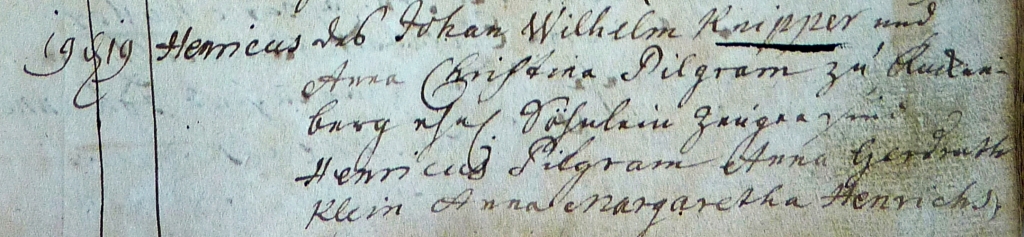 19 19 Henricus des Johan Wilhelm Knipper und
Anna Christina Pilgram zu
berg ehel. Söhnlein Zeugen sind
Henricus Pilgram Anna Gerdruth
Klein Anna Margaretha Henrichs,